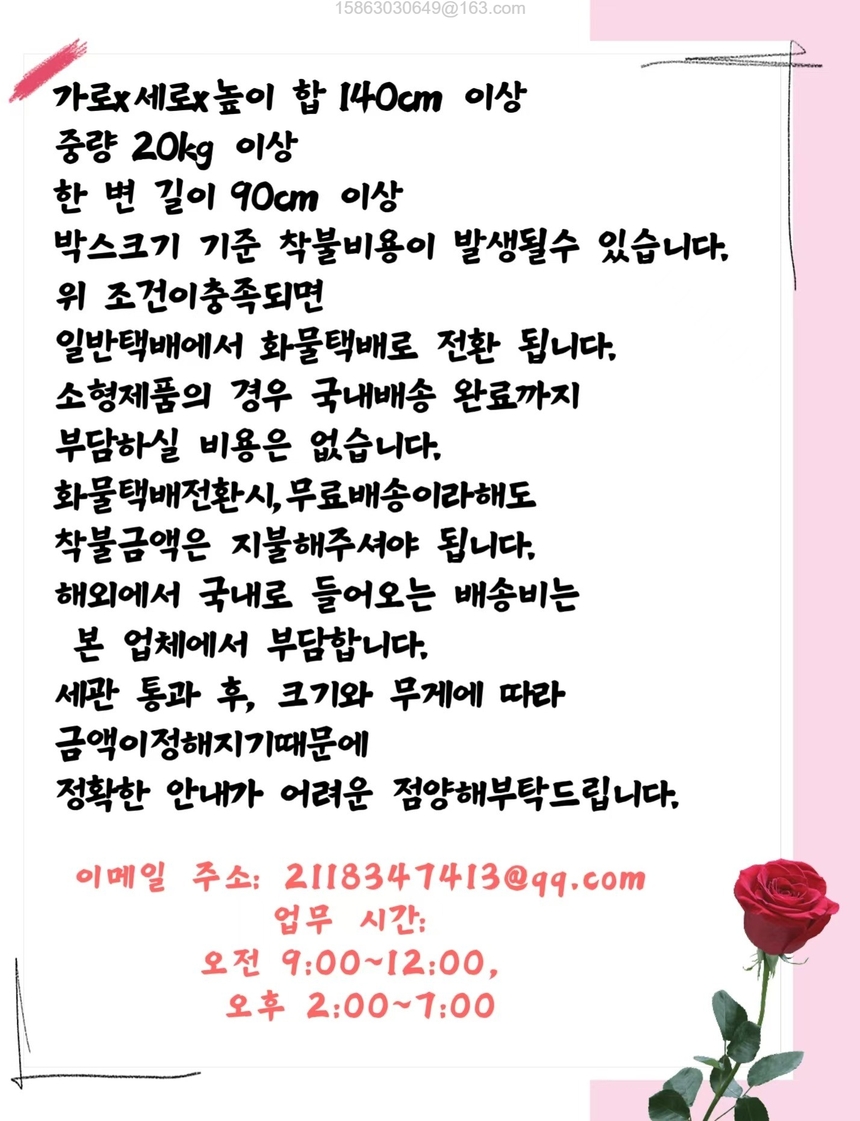 15863030649@163.com
가로x세로x높이 합 140cm 이상
중량 20kg 이상
한 변 길이 90cm 이상
박스크기 기준 착불비용이 발생될수 있습니다.
위 조건이충족되면
일반택배에서 화물택배로 전환 됩니다.
소형제품의 경우 국내배송 완료까지
부담하실 비용은 없습니다.
화물택배전환시,무료배송이라해도
착불금액은 지불해주셔야 됩니다.
해외에서 국내로 들어오는 배송비는
본 업체에서 부담합니다.
세관 통과 후, 크기와 무게에 따라
금액이정해지기때문에
정확한 안내가 어려운 점양해부탁드립니다.
이메일 주소: 2118347413@qq.com
업무 시간:
오전 9:00~12:00,
오후 2:00~7:00